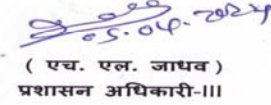 05.04.2024
( एच. एल. जाधव )
प्रशासन अधिकारी-III